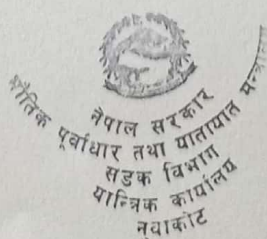 नेपाल सरकार
भौतिक पूर्वाधार तथा यातायात मन्त्रालय
सडक विभाग
यान्त्रिक कार्यालय
नवाकोट